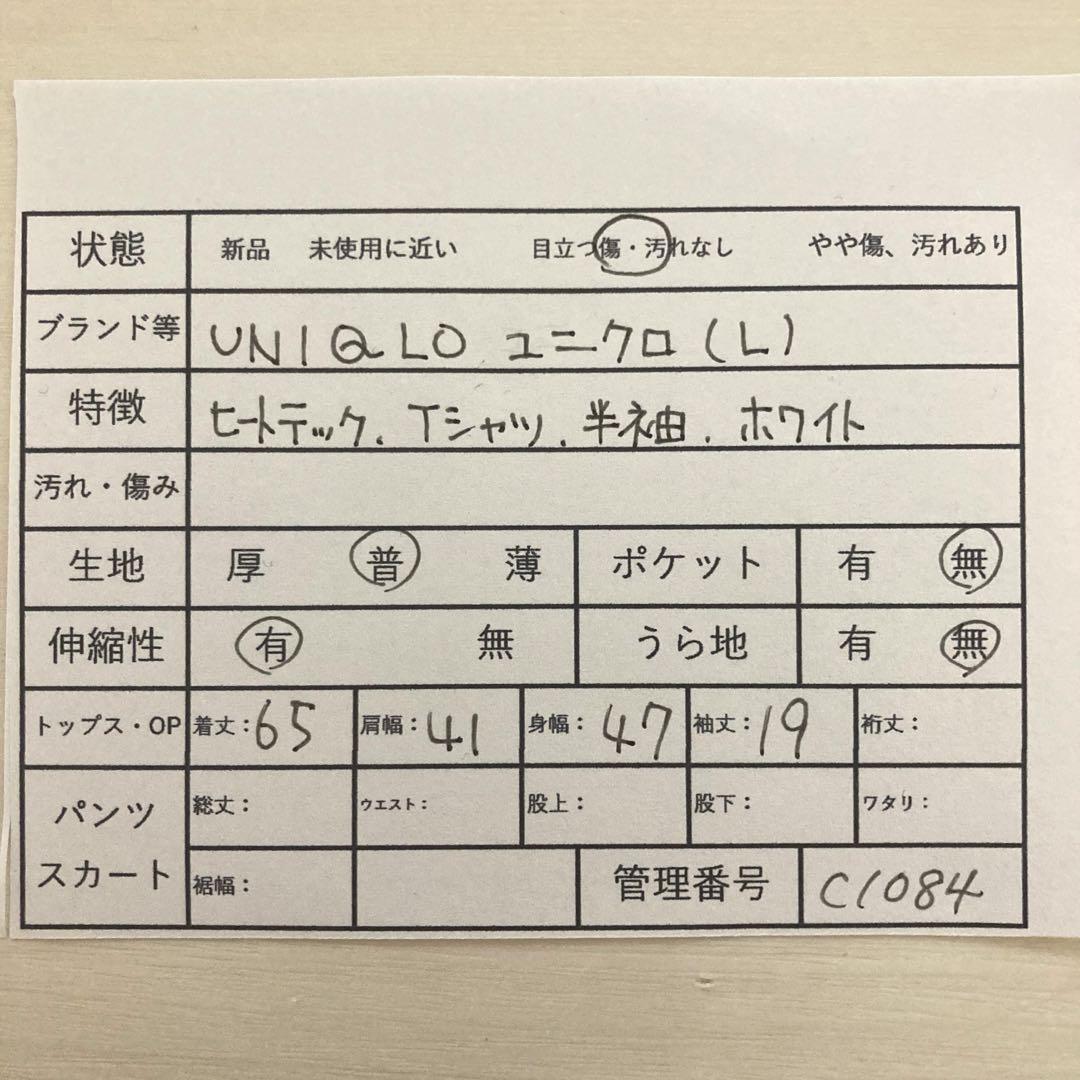 状態 新品 未使用に近い 目立つ傷・汚れなし やや傷、汚れあり
ブランド等 UNIQLO ユニクロ(L)
特徴 ヒートテック、Tシャツ、半袖、ホワイト
汚れ・傷み
生地 厚 普 薄 ポケット 有 無
伸縮性 有 無 うら地 有 無
トップス・OP 着丈:65 肩幅:41 身幅:47 袖丈:19 裄丈:
パンツ 総丈: ウエスト: 股上: 股下: ワタリ:
スカート 裾幅: 管理番号 C1084